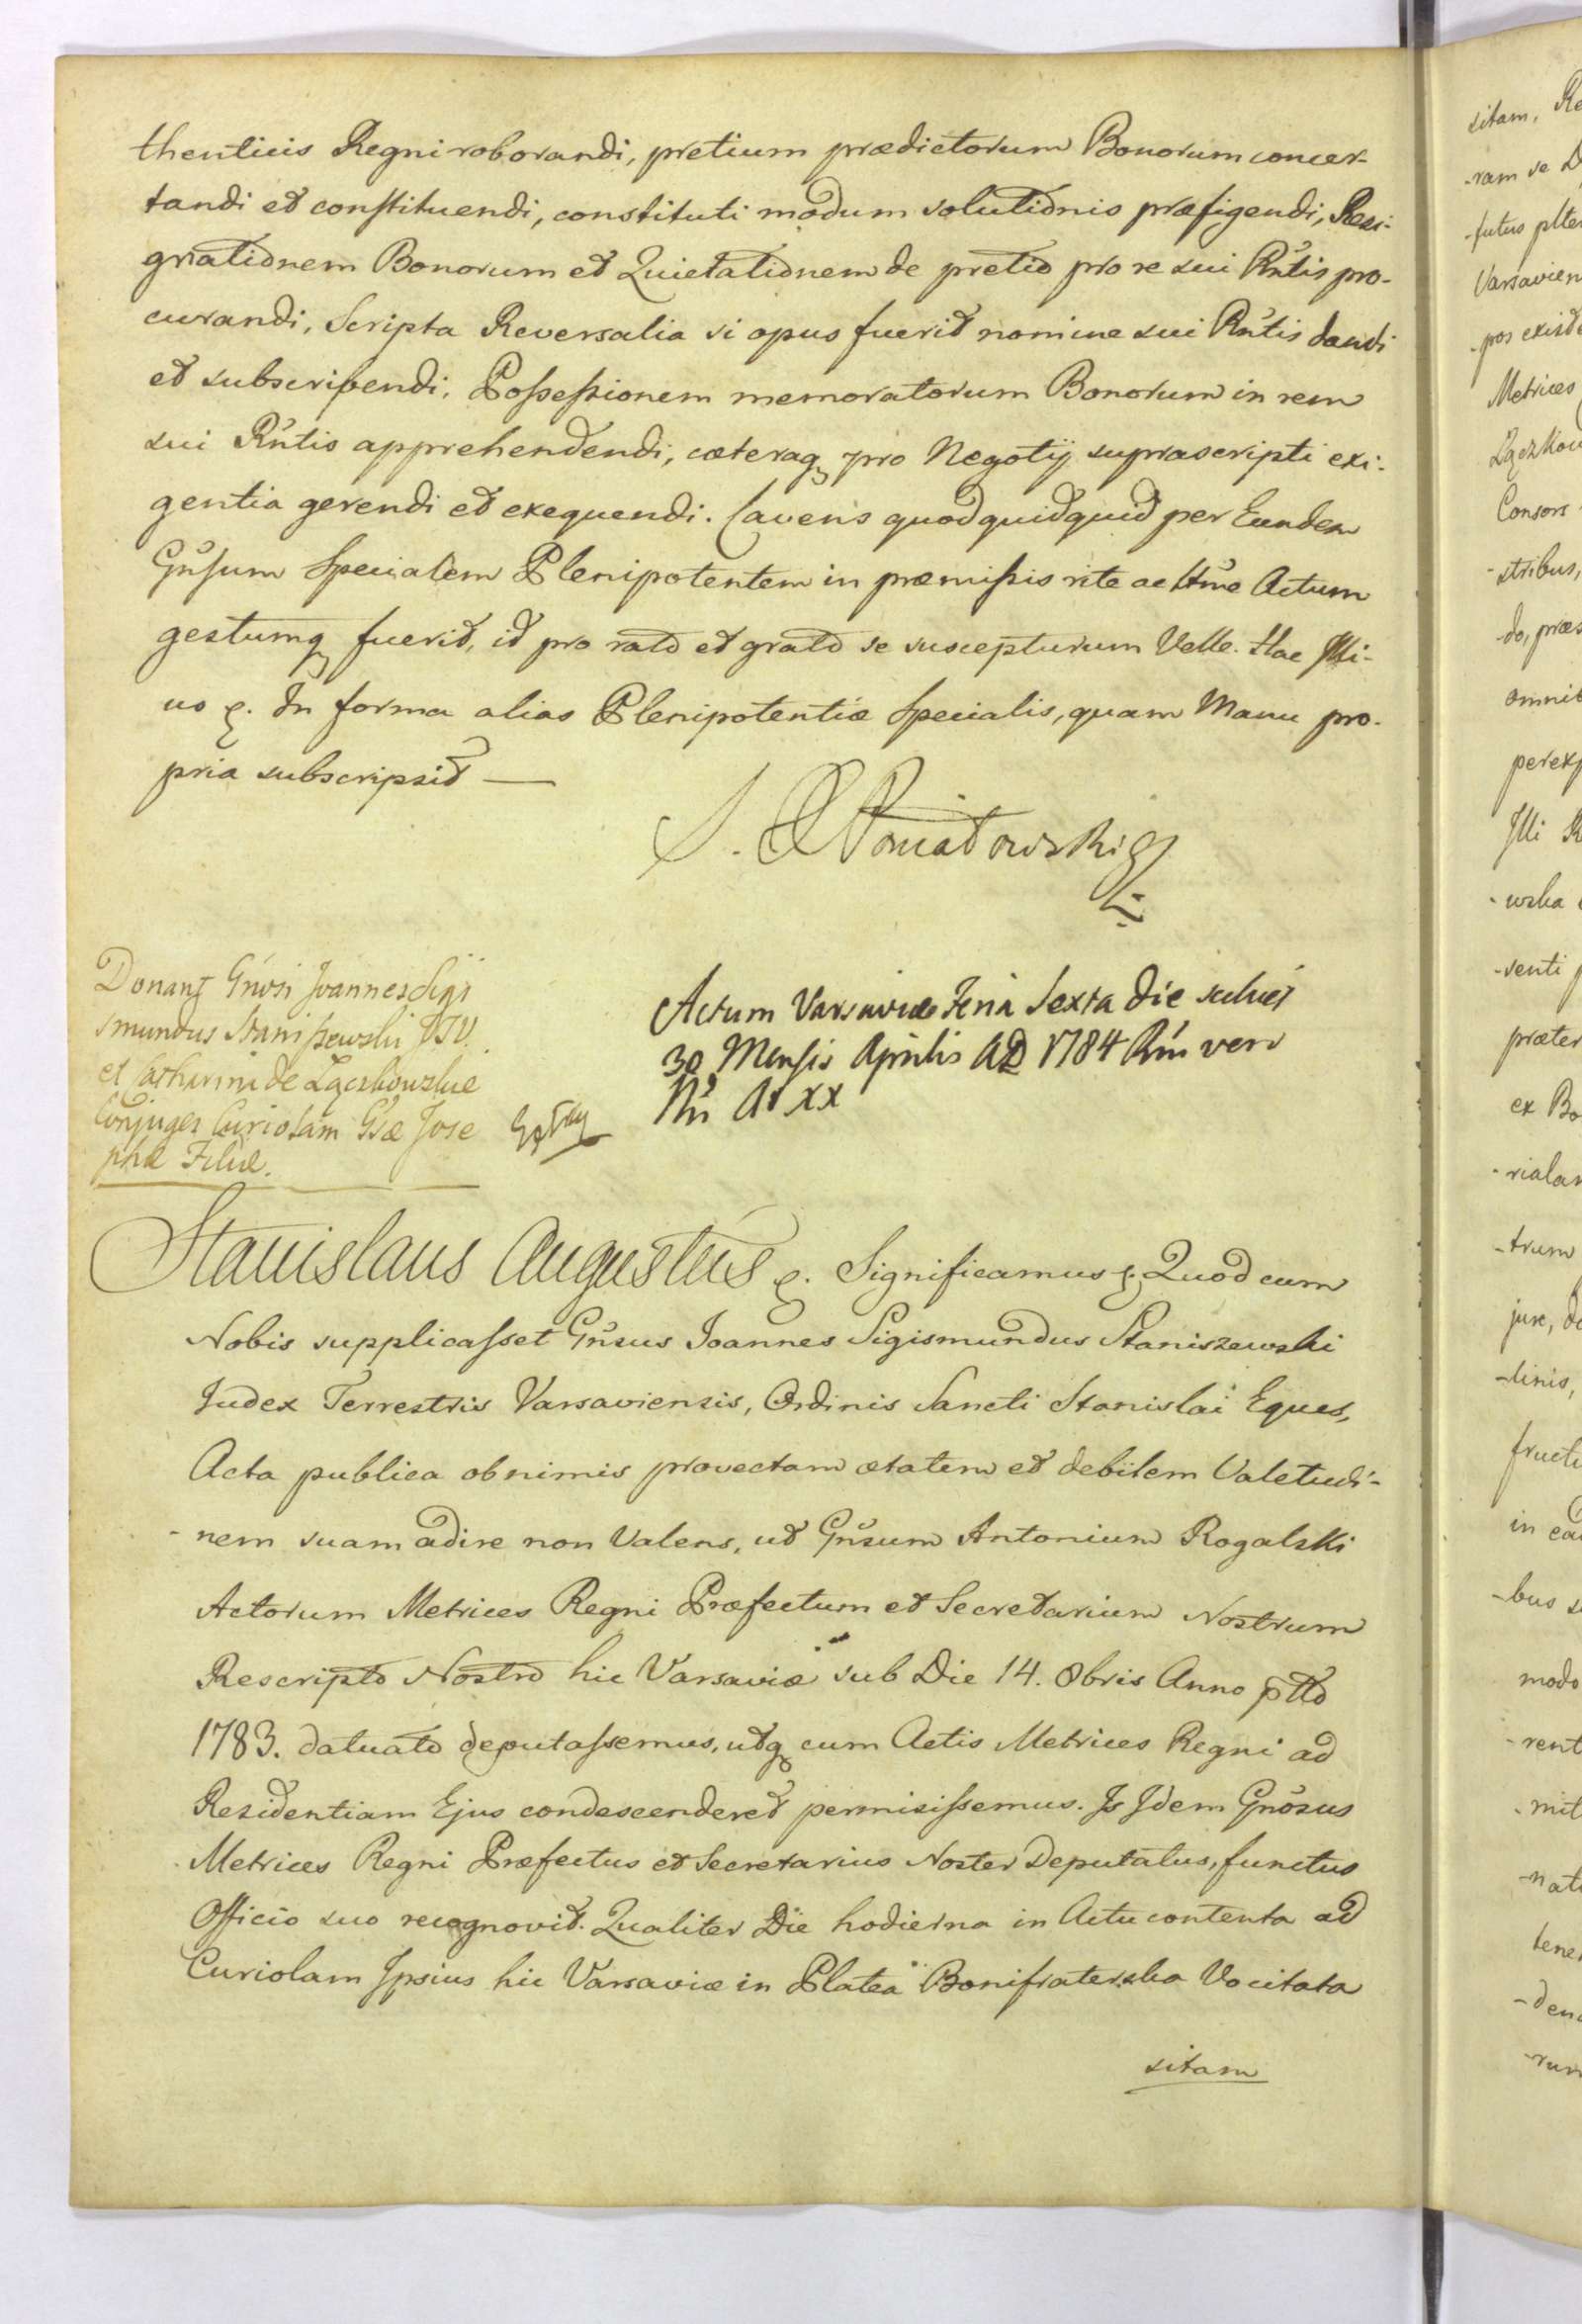 thenticis Regni roborandi, pretium prædictorum Bonorum concer-
tandi et constituendi, constituti modum solutionis præfigendi, Resi-
gnationem Bonorum et Quietationem de pretio pro re sui Rñtis pro-
curandi, Scripta Reversalia si opus fuerit nomine sui Rñtis dandi
et subscribendi, Possessionem memoratorum Bonorum in rem
sui Rñtis apprehendendi, cæteraq pro Negotij suprascripti exi-
gentia gerendi et exequendi. Cavens quod quidquid per Eundem
Gñsum Specialem Plenipotentem in præmissis rite ac ltme Actum
gestumq fuerit, id pro rato et grato se suscepturum Velle. Hac
In forma alias Plenipotentiæ Specialis, quam Manu pro-
pria subscripsit —
Poniatowski
Donant Gnosi Joannes Sigi
smundus Staniszewski JTV.
et Catharina de Łączkowskie
Conjuges Curiolam Gsæ Jose
phæ Filiæ.
Actum Varsaviæ Feria Sexta die scilicet
30 Mensis Aprilis AD 1784 Rñi vero
Ñri Aº XX
Stanislaus Augustus Significamus Quod cum
Nobis supplicasset Gñsus Joannes Sigismundus Staniszewski
Judex Terrestris Varsaviensis, Ordinis Sancti Stanislai Eques,
Acta publica ob nimis provectam ætatem et debilem Valetudi-
-nem suam adire non Valens, ut Gñsum Antonium Rogalski
Actorum Metrices Regni Præfectum et Secretarium Nostrum
Rescripto Nostro hic Varsaviæ sub Die 14. 8bris Anno ptto
1783. datuato deputassemus, utq cum Actis Metrices Regni ad
Residentiam Ejus condescenderet permisissemus. Is Idem Gnosus
Metrices Regni Præfectus et Secretarius Noster Deputatus, functus
Officio suo recognovit. Qualiter Die hodierna in Actu contenta ad
Curiolam Ipsius hic Varsaviæ in Platea Bonifraterska Vocitata
sitam
sitam,
-ram se
-futus
Varsavien
-pos
Metrices
Consors
-stribus,
-do,
omnib
Illi
-wska
-senti
præter
ex Bo
-trum
jure,
-linis,
-bus
modo
-rent
-mit